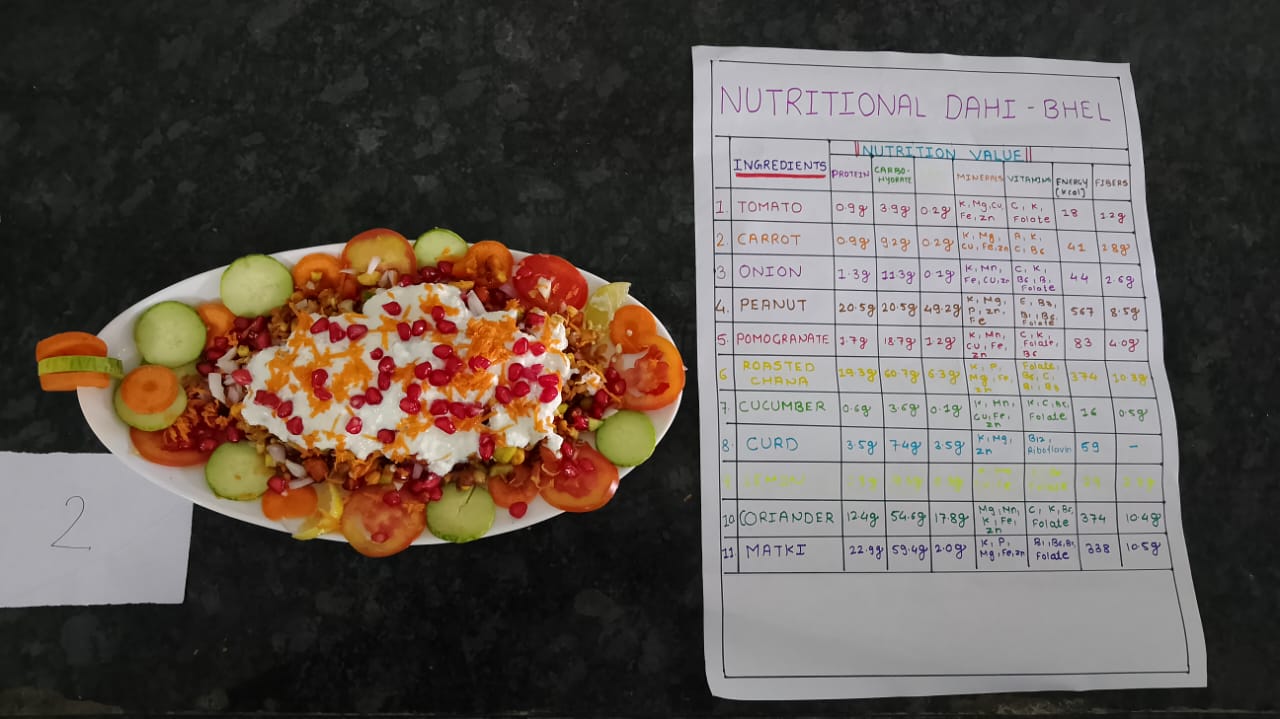 NUTRITIONAL DAHI - BHEL
NUTRITION VALUE
INGREDIENTS PROTEIN CARBO-HYDRATE MINERALS VITAMINS ENERGY (Kcal) FIBERS
1. TOMATO 0.9g 3.9g 0.2g K, Mg, Cu, Fe, Zn C, K, Folate 18 1.2g
2. CARROT 0.9g 9.2g 0.2g K, Mg, Cu, Fe, Zn A, K, C, B6 41 2.8g
3 ONION 1.3g 11.3g 0.1g K, Mn, Fe, Cu, Zn C, K, B6, B1 Folate 44 2.6g
4. PEANUT 20.5g 20.5g 49.2g K, Mg, P, Zn, Fe E, B3, B1, B6 Folate 567 8.5g
5. POMOGRANATE 1.7g 18.7g 1.2g K, Mn, Cu, Fe, Zn C, K, Folate, B6 83 4.0g
6 ROASTED CHANA 19.3g 60.7g 6.3g K, P, Mg, Fe, Zn Folate, B6, C, B1, B3 374 10.3g
7. CUCUMBER 0.6g 3.6g 0.1g K, Mn, Cu, Fe, Zn K, C, B6, Folate 16 0.5g
8. CURD 3.5g 7.4g 3.5g K, Mg, Zn B12, Riboflavin 59 -
LEMON
10. CORIANDER 12.4g 54.6g 17.8g Mg, Mn, K, Fe, Zn C, K, B6, Folate 374 10.4g
11. MATKI 22.9g 59.4g 2.0g K, P, Mg, Fe, Zn Folate 338 10.5g
2